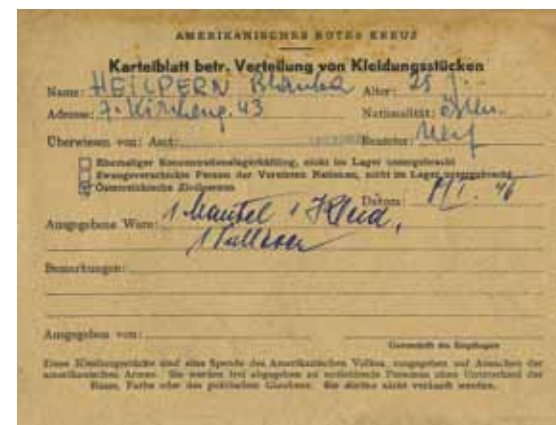 AMERIKANISCHES ROTES KREUZ
Karteiblatt betr. Verteilung von Kleidungsstücken
Name: HEILPERN Blanka Alter: 25 J.
Adresse: 7. Kircheng. 43 Nationalität: österr.
Überwiesen von: Amt: Beamter:
Ehemaliger Konzentrationslagerhäftling, nicht im Lager untergebracht
Zwangsverschickte Person der Vereinten Nationen, nicht im Lager untergebracht
Österreichische Zivilperson
Datum: 46
Ausgegebene Ware: 1 Mantel 1 Kleid,
1 Pullover
Bemerkungen:
Ausgegeben von:
Unterschrift des Empfängers
Diese Kleidungsstücke sind eine Spende des Amerikanischen Volkes, ausgegeben auf Ansuchen der
amerikanischen Armee. Sie werden frei abgegeben an notleidende Personen ohne Unterschied der
Rasse, Farbe oder des politischen Glaubens. Sie dürfen nicht verkauft werden.